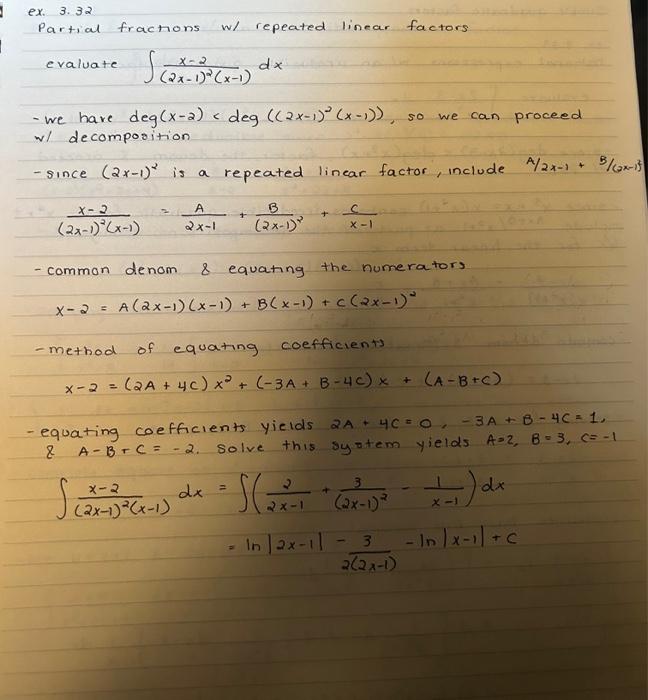 ex. 3.32
Partial fractions w/ repeated linear factors
evaluate ∫ x-2/((2x-1)²(x-1)) dx
- we have deg(x-2) < deg ((2x-1)²(x-1)), so we can proceed
w/ decomposition
- since (2x-1)² is a repeated linear factor, include A/2x-1 + B/(2x-1)²
x-2/((2x-1)²(x-1)) = A/(2x-1) + B/(2x-1)² + C/(x-1)
- common denom & equating the numerators
x-2 = A(2x-1)(x-1) + B(x-1) + C(2x-1)²
- method of equating coefficients
x-2 = (2A + 4C) x² + (-3A + B-4C) x + (A-B+C)
- equating coefficients yields 2A + 4C = 0, -3A + B - 4C = 1,
& A-B+C = -2. Solve this system yields A=2, B=3, C=-1
∫ x-2/((2x-1)²(x-1)) dx = ∫(2/(2x-1) + 3/(2x-1)² - 1/(x-1)) dx
= ln|2x-1| - 3/(2(2x-1)) - ln|x-1| + C